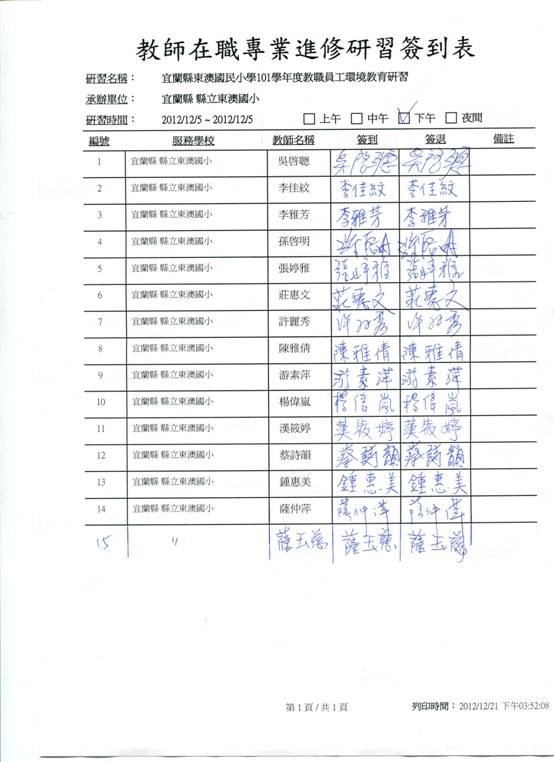 教師在職專業進修研習簽到表
研習名稱： 宜蘭縣東澳國民小學101學年度教職員工環境教育研習
承辦單位： 宜蘭縣 縣立東澳國小
研習時間： 2012/12/5 ~ 2012/12/5 □ 上午 □ 中午 ☑ 下午 □ 夜間
編號 服務學校 教師名稱 簽到 簽退 備註
1 宜蘭縣 縣立東澳國小 吳啓聰 吳啓聰 吳啓聰
2 宜蘭縣 縣立東澳國小 李佳紋 李佳紋 李佳紋
3 宜蘭縣 縣立東澳國小 李雅芳 李雅芳 李雅芳
4 宜蘭縣 縣立東澳國小 孫啓明
5 宜蘭縣 縣立東澳國小 張婷雅 張婷雅 張婷雅
6 宜蘭縣 縣立東澳國小 莊惠文 莊惠文 莊惠文
7 宜蘭縣 縣立東澳國小 許麗秀 許 秀 許 秀
8 宜蘭縣 縣立東澳國小 陳雅倩 陳雅倩 陳雅倩
9 宜蘭縣 縣立東澳國小 游素萍 游素萍 游素萍
10 宜蘭縣 縣立東澳國小 楊偉嵐 楊偉嵐 楊偉嵐
11 宜蘭縣 縣立東澳國小 漢筱婷 漢筱婷 漢筱婷
12 宜蘭縣 縣立東澳國小 蔡詩韻 蔡詩韻 蔡詩韻
13 宜蘭縣 縣立東澳國小 鍾惠美 鍾惠美 鍾惠美
14 宜蘭縣 縣立東澳國小 薩仲萍 薩仲萍 薩仲萍
15 〃 薩玉慈 薩玉慈 薩玉慈
第 1 頁 / 共 1 頁 列印時間： 2012/12/21 下午03:52:08